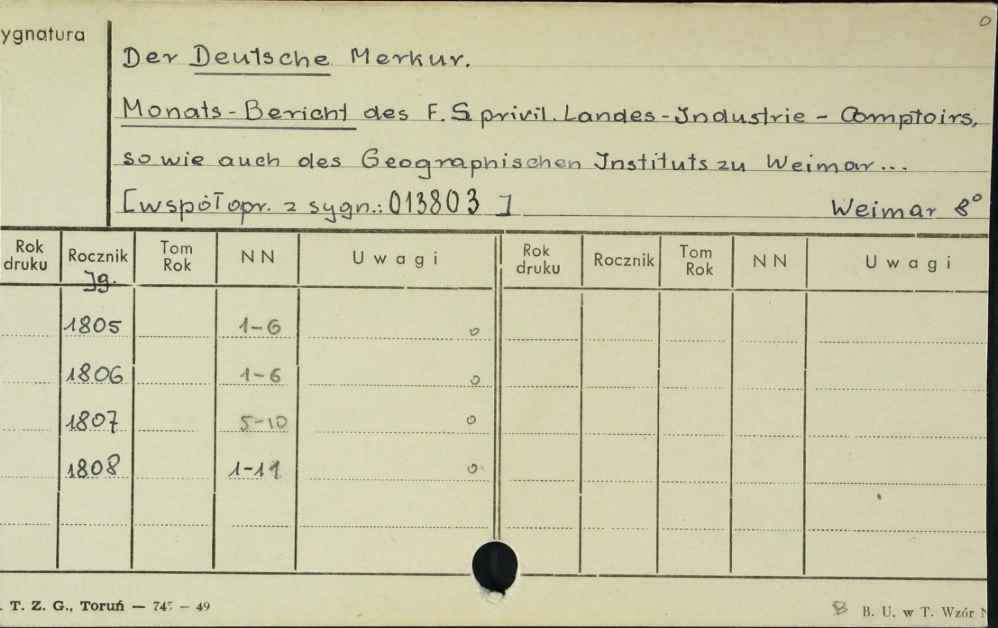 ygnatura
0
Der Deutsche Merkur.
Monats-Bericht des F. S privil. Landes-Industrie - Comptoirs,
so wie auch des Geographischen Instituts zu Weimar...
[współopr. z sygn.: 013803 ] Weimar 8°
Rok druku Rocznik Tom Rok N N Uwagi Rok druku Rocznik Tom Rok N N Uwagi
Jg.
1805 1-6 o
1806 1-6 o
1807 5-10 o
1808 1-11 o
. T. Z. G., Toruń — 74 - 49 B B. U. w T. Wzór